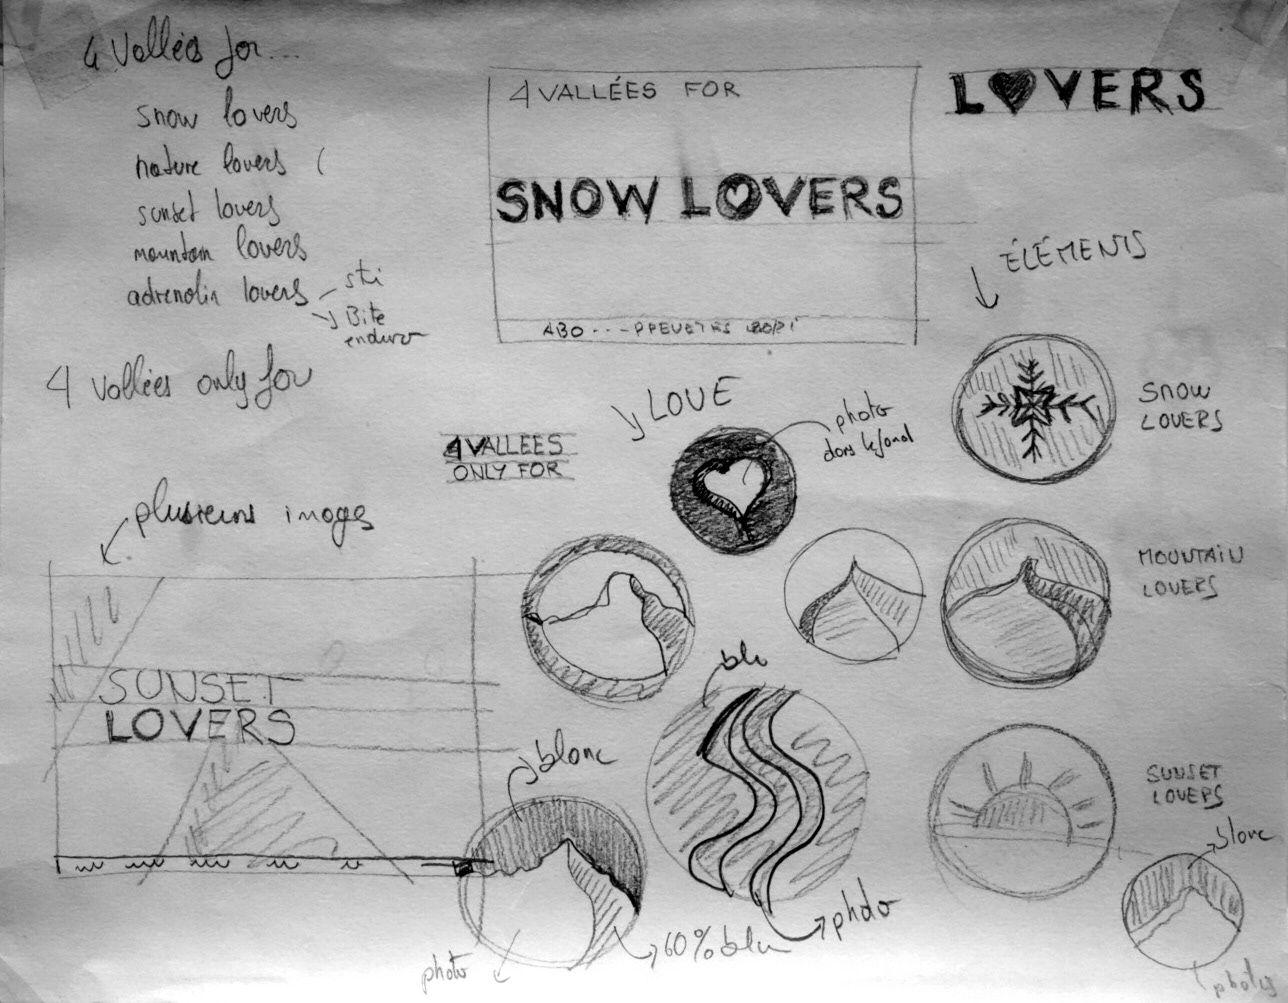 4 Vallées for...
snow lovers
nature lovers (
sunset lovers
mountain lovers
adrenalin lovers
ski
Bike
enduro
4 Vallées only for
4 VALLÉES FOR
SNOW LOVERS
ABO ...
LOVERS
ÉLÉMENTS
SNOW
LOVERS
LOVE
photo
dans le fond
4 VALLEES
ONLY FOR
plusieurs images
MOUNTAIN
LOVERS
SUNSET
LOVERS
bleu
blanc
SUNSET
LOVERS
blanc
photo
60% bleu
photo
photo